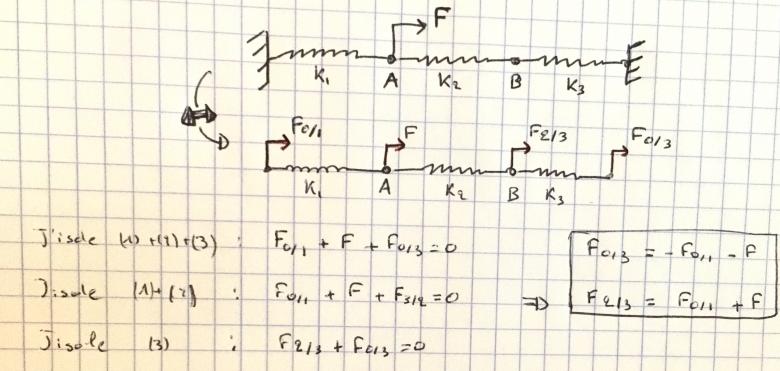 F
K₁ A K₂ B K₃
F₀/₁ F F₂/₃ F₀/₃
K₁ A K₂ B K₃
J'isole (1)+(2)+(3) : F₀/₁ + F + F₀/₃ = 0
J'isole (1)+(2) : F₀/₁ + F + F₃/₂ = 0 ⇒
J'isole (3) : F₂/₃ + F₀/₃ = 0
F₀/₃ = - F₀/₁ - F
F₂/₃ = F₀/₁ + F